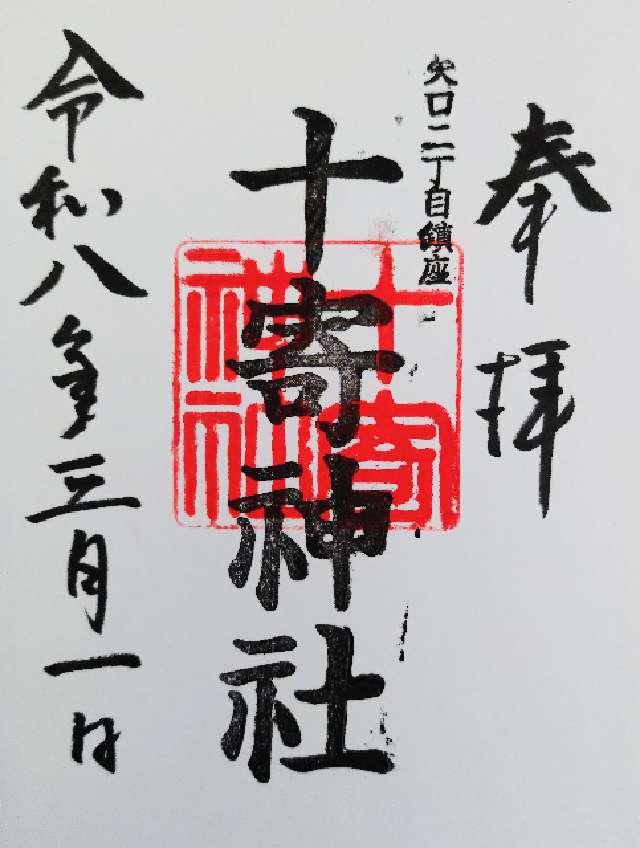 奉拝
矢口二丁目鎮座
十寄神社
十寄神社
令和八年三月一日